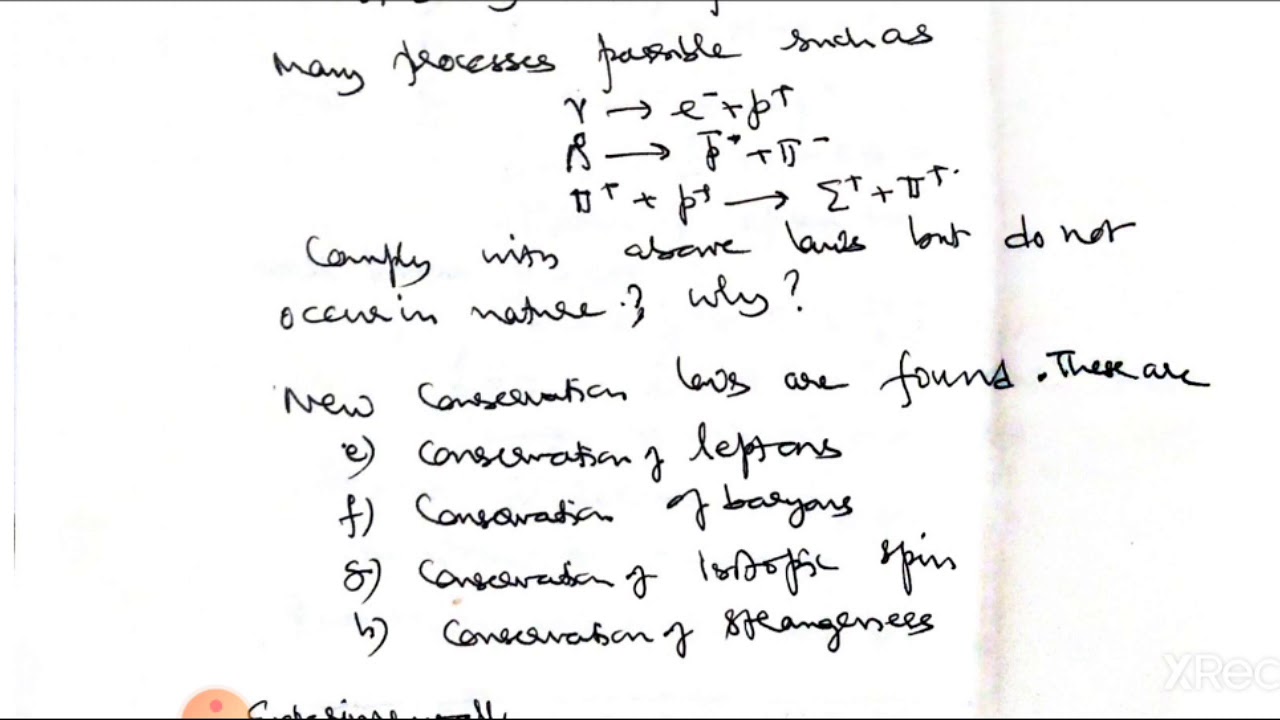 many processes possible such as
γ → e⁻ + p⁺
→ p̄⁺ + π⁻
π⁺ + p⁺ → Σ⁺ + π⁺
Comply with above laws but do not
occur in nature ? why?
New Conservation laws are found . These are
e) Conservation of leptons
f) Conservation of baryons
g) Conservation of isotopic spin
h) Conservation of strangeness
Experimentally
XRec